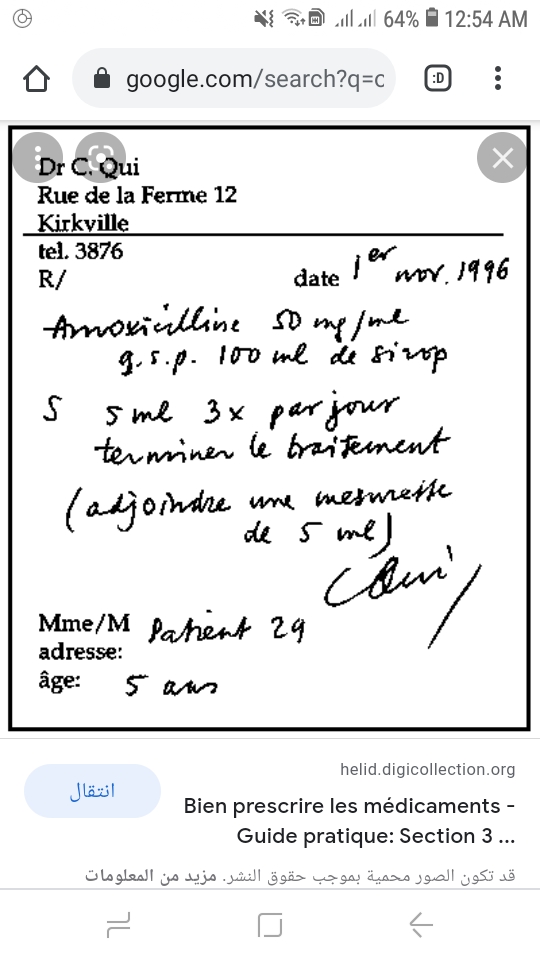 64% 12:54 AM
google.com/search?q=c
:D
Dr C. Qui
Rue de la Ferme 12
Kirkville
tel. 3876
R/
date 1er nov. 1996
Amoxicilline 50 mg/ml
q.s.p. 100 ml de sirop
S 5 ml 3x par jour
terminer le traitement
(adjoindre une mesurette
de 5 ml)
CQui
Mme/M Patient 29
adresse:
âge: 5 ans
helid.digicollection.org
انتقال
Bien prescrire les médicaments -
Guide pratique: Section 3 ...
قد تكون الصور محمية بموجب حقوق النشر. مزيد من المعلومات